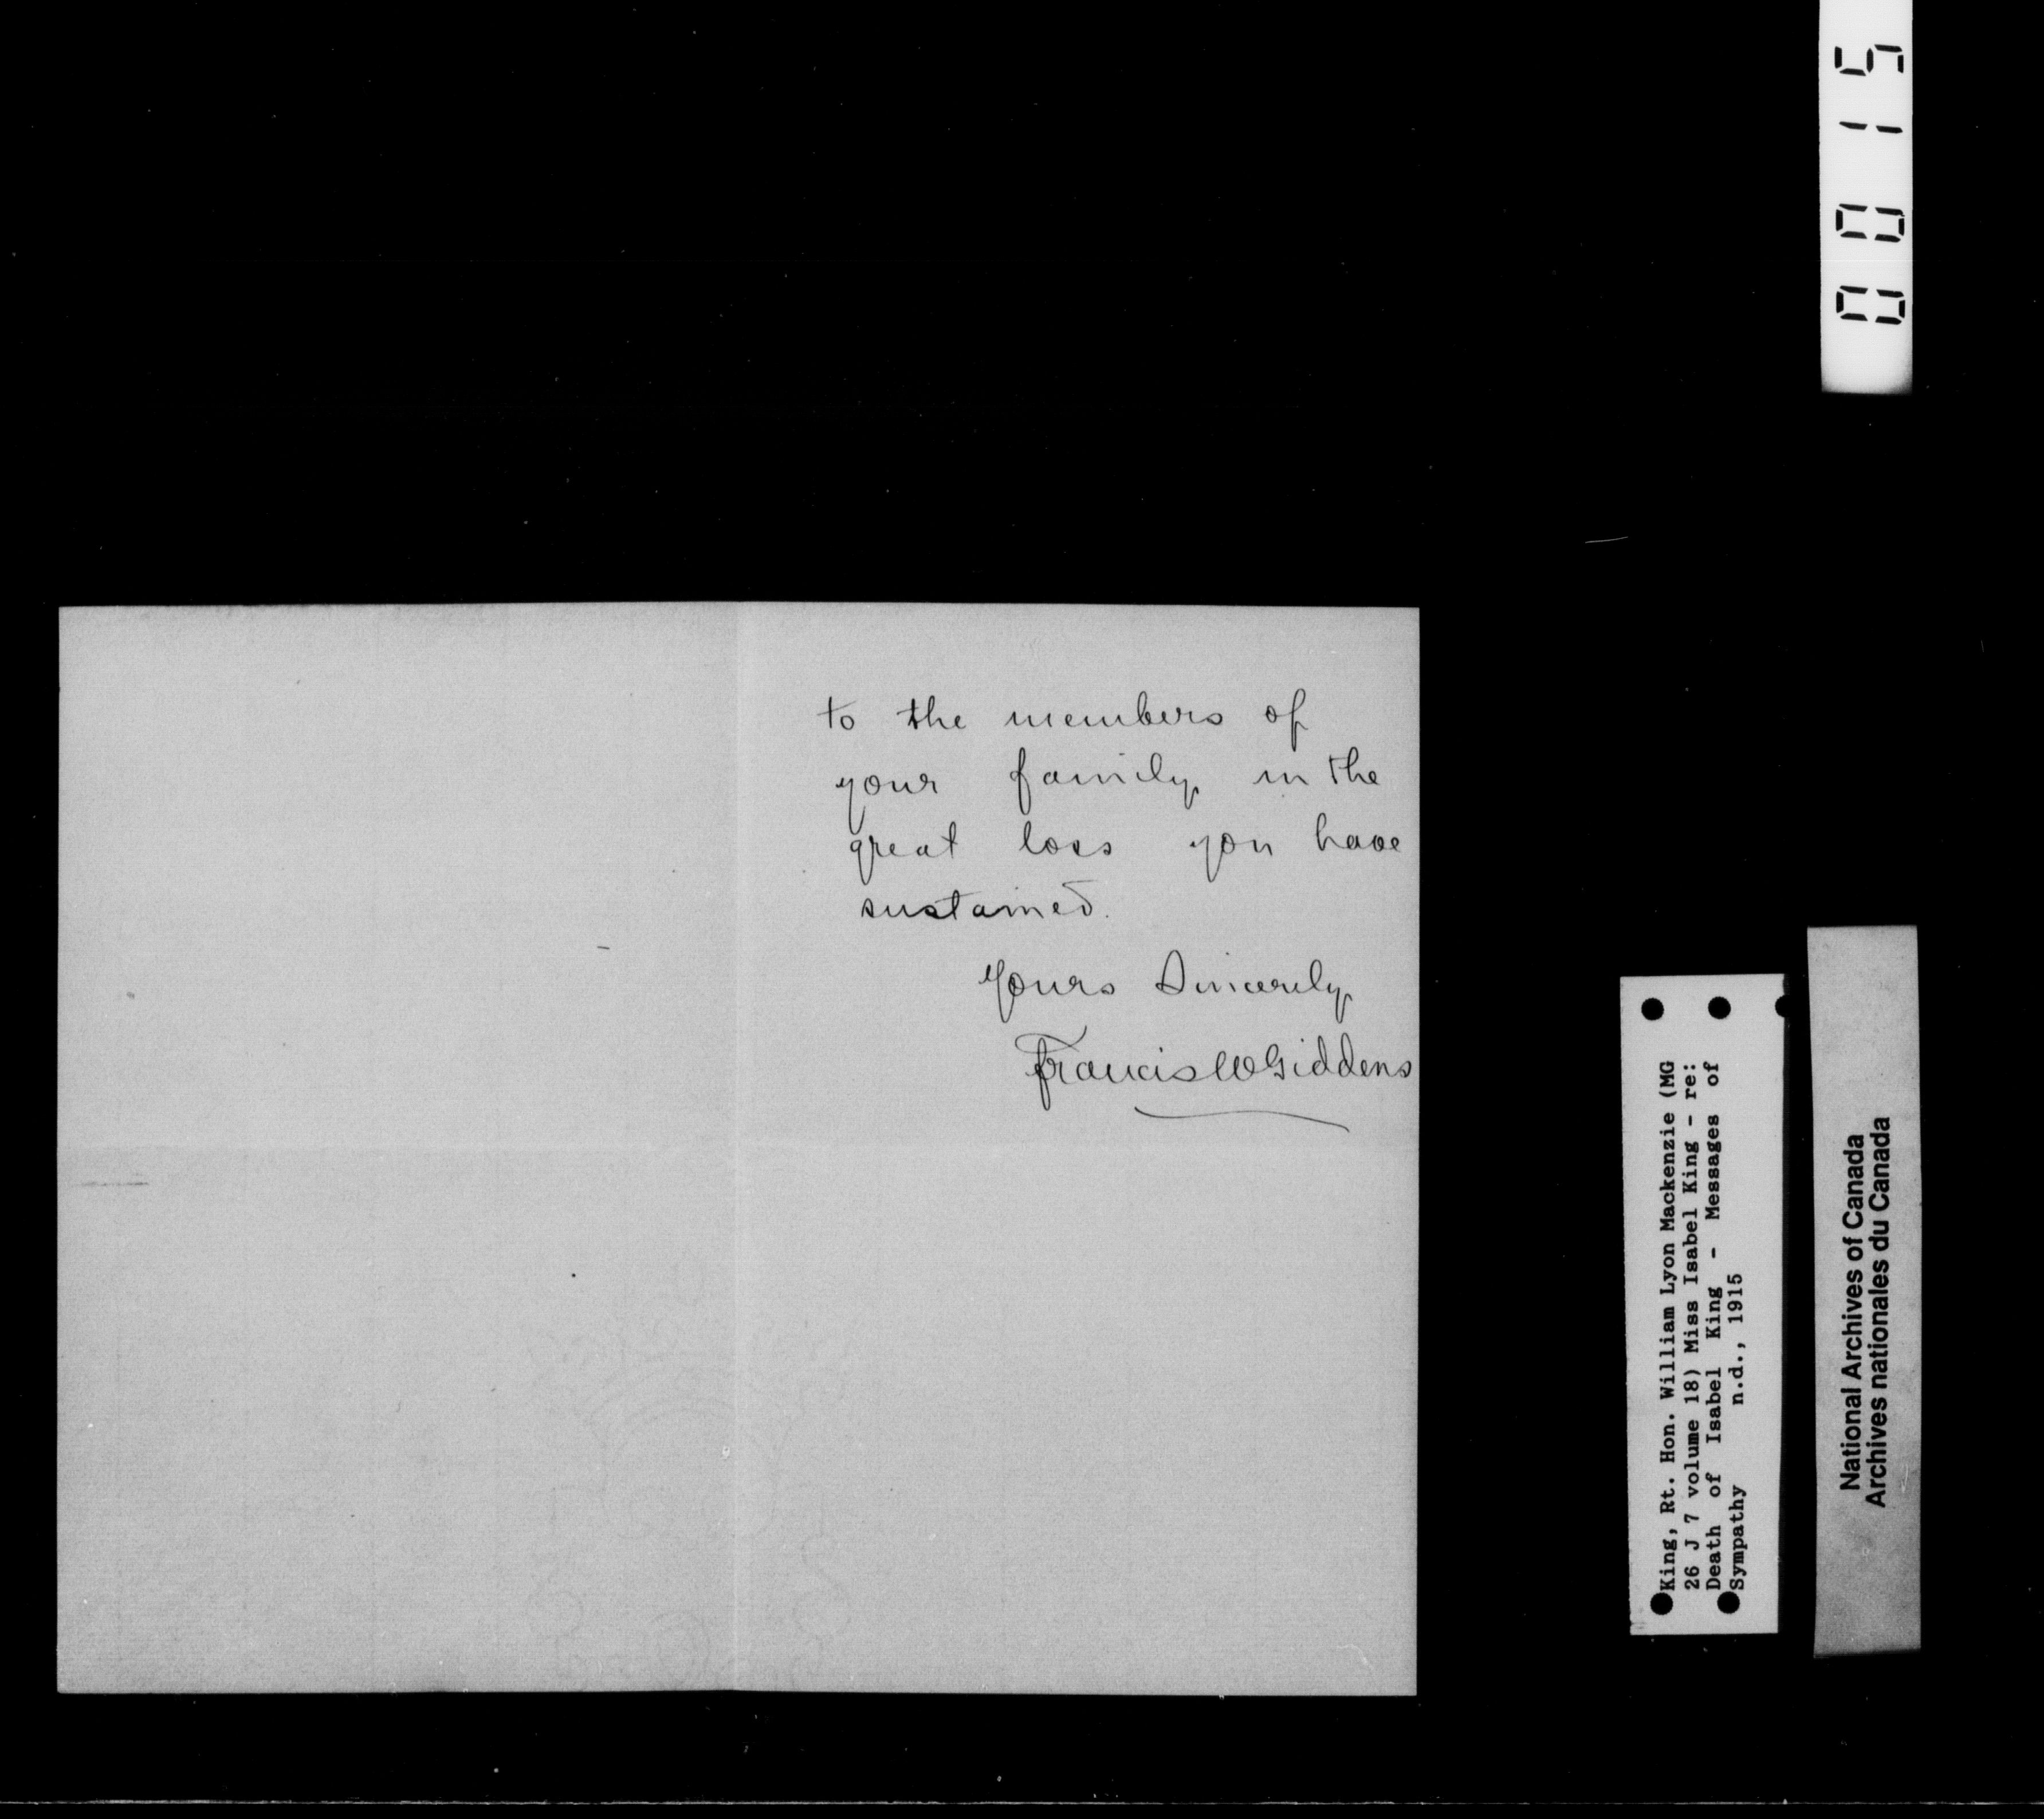 to the members of
your family in the
great loss you have
sustained.
Yours Sincerely
Francis W Giddens
0015
King, Rt. Hon. William Lyon Mackenzie (MG
26 J 7 volume 18) Miss Isabel King - re:
Death of Isabel King - Messages of
Sympathy n.d., 1915
National Archives of Canada
Archives nationales du Canada